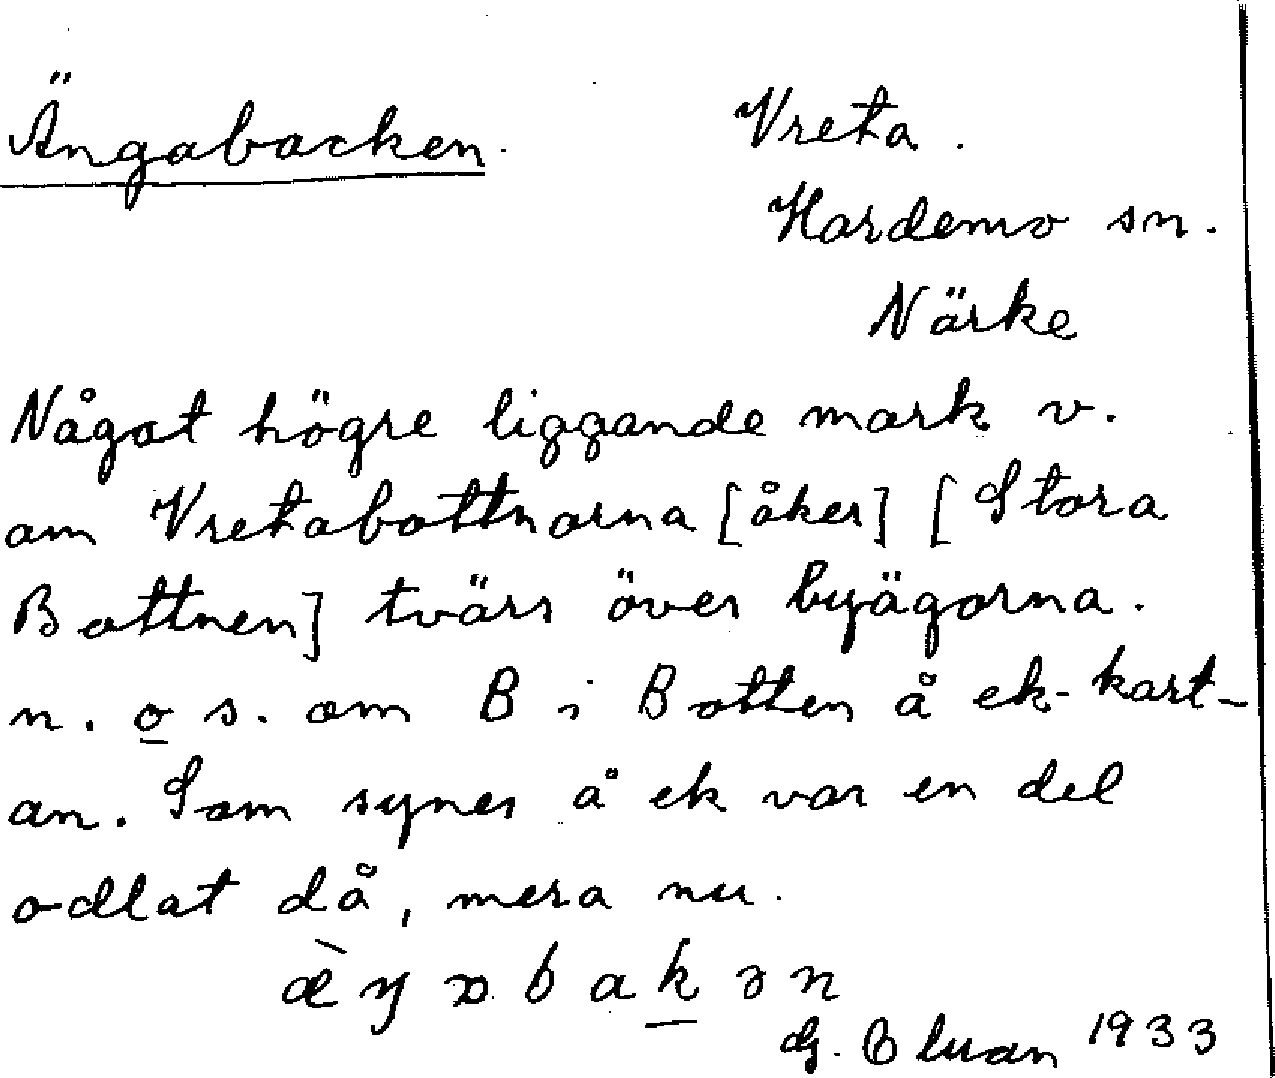 Ängabacken.
Vreta.
Hardemo sn.
Närke
Något högre liggande mark v.
om Vretabottnarna [åker] [Stora
Bottnen] tvärs över byägorna.
n. o s. om B i Botten å ek-kart-
an. Som synes å ek var en del
odlat då, mera nu.
G. 1933